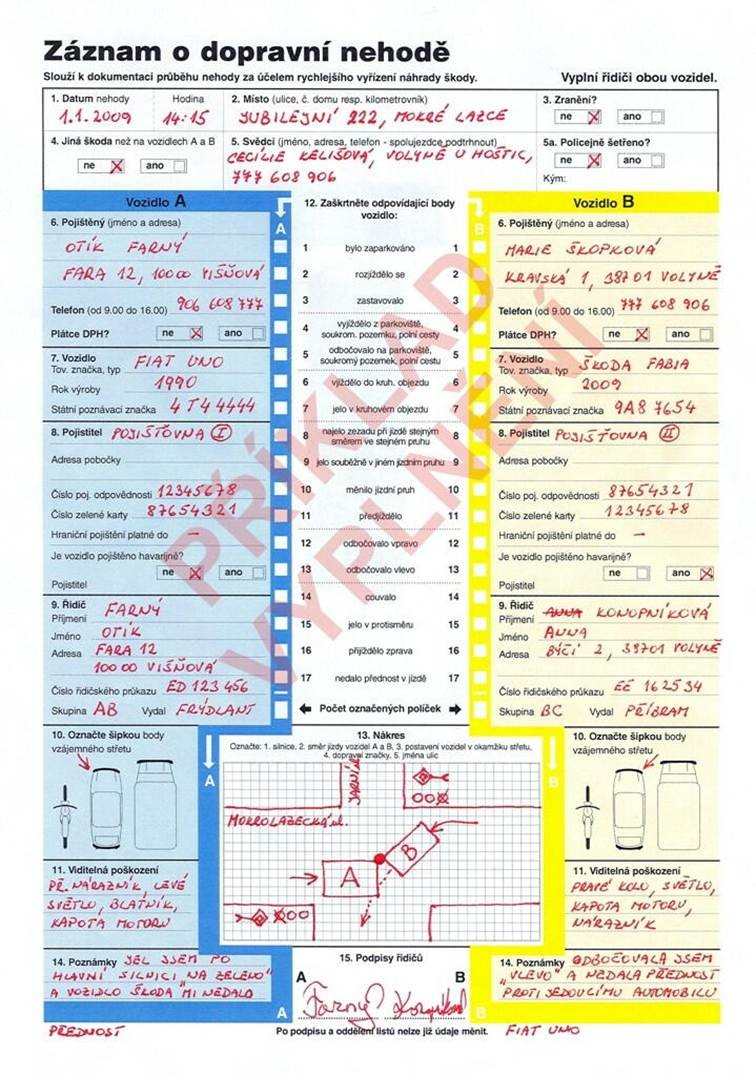 Záznam o dopravní nehodě
Slouží k dokumentaci průběhu nehody za účelem rychlejšího vyřízení náhrady škody. Vyplní řidiči obou vozidel.
1. Datum nehody Hodina
1.1.2009 14:15
2. Místo (ulice, č. domu resp. kilometrovník)
JUBILEJNÍ 222, MOKRÉ LAZCE
3. Zranění?
ne X ano
4. Jiná škoda než na vozidlech A a B
ne X ano
5. Svědci (jméno, adresa, telefon - spolujezdce podtrhnout)
CECÍLIE KELIŠOVÁ, VOLYNĚ U HOŠTIC,
777 608 906
5a. Policejně šetřeno?
ne X ano
Kým:
Vozidlo A
6. Pojištěný (jméno a adresa)
OTÍK FARNÝ
FARA 12, 100 00 VIŠŇOVÁ
Telefon (od 9.00 do 16.00) 906 608 777
Plátce DPH? ne X ano
7. Vozidlo
Tov. značka, typ FIAT UNO
Rok výroby 1990
Státní poznávací značka 4T4 4444
8. Pojistitel POJIŠŤOVNA I
Adresa pobočky
Číslo poj. odpovědnosti 12345678
Číslo zelené karty 87654321
Hraniční pojištění platné do –
Je vozidlo pojištěno havarijně?
ne X ano
Pojistitel
9. Řidič
Příjmení FARNÝ
Jméno OTÍK
Adresa FARA 12
100 00 VIŠŇOVÁ
Číslo řidičského průkazu ED 123 456
Skupina AB Vydal FRÝDLANT
10. Označte šipkou body
vzájemného střetu
11. Viditelná poškození
PŘ. NÁRAZNÍK, LEVÉ
SVĚTLO, BLATNÍK,
KAPOTA MOTORU
14. Poznámky JEL JSEM PO
HLAVNÍ SILNICI NA ZELENOU
A VOZIDLO ŠKODA "MI NEDALO
PŘEDNOST
12. Zaškrtněte odpovídající body
vozidlo:
A B
1 bylo zaparkováno 1
2 rozjíždělo se 2
3 zastavovalo 3
4 vyjíždělo z parkoviště, soukrom. pozemku, polní cesty 4
5 odbočovalo na parkoviště, soukromý pozemek, polní cestu 5
6 vjíždělo do kruh. objezdu 6
7 jelo v kruhovém objezdu 7
8 najelo zezadu při jízdě stejným směrem ve stejném pruhu 8
9 jelo souběžně v jiném jízdním pruhu 9
10 měnilo jízdní pruh 10
11 předjíždělo 11
12 odbočovalo vpravo 12
13 odbočovalo vlevo 13
14 couvalo 14
15 jelo v protisměru 15
16 přijíždělo zprava 16
17 nedalo přednost v jízdě 17
Počet označených políček
PŘÍKLAD
VYPLNĚNÍ
13. Nákres
Označte: 1. silnice, 2. směr jízdy vozidel A a B, 3. postavení vozidel v okamžiku střetu,
4. dopravní značky, 5. jména ulic
A B
JARNÍ
MOKROLAZECKÁ ul.
A
B
15. Podpisy řidičů
A B
Farný Konopníková
A B
Po podpisu a oddělení listů nelze již údaje měnit.
Vozidlo B
6. Pojištěný (jméno a adresa)
MARIE ŠKOPKOVÁ
KRAVSKÁ 1, 387 01 VOLYNĚ
Telefon (od 9.00 do 16.00) 777 608 906
Plátce DPH? ne X ano
7. Vozidlo
Tov. značka, typ ŠKODA FABIA
Rok výroby 2009
Státní poznávací značka 9A8 7654
8. Pojistitel POJIŠŤOVNA II
Adresa pobočky
Číslo poj. odpovědnosti 87654321
Číslo zelené karty 12345678
Hraniční pojištění platné do –
Je vozidlo pojištěno havarijně?
ne ano X
Pojistitel
9. Řidič
Příjmení ANNA KONOPNÍKOVÁ
Jméno ANNA
Adresa BÝČÍ 2, 38701 VOLYNĚ
Číslo řidičského průkazu EČ 162534
Skupina BC Vydal PŘÍBRAM
10. Označte šipkou body
vzájemného střetu
11. Viditelná poškození
PRAVÉ KOLO, SVĚTLO,
KAPOTA MOTORU,
NÁRAZNÍK
14. Poznámky ODBOČOVALA JSEM
"VLEVO" A NEDALA PŘEDNOST
PROTIJEDOUCÍMU AUTOMOBILU
FIAT UNO